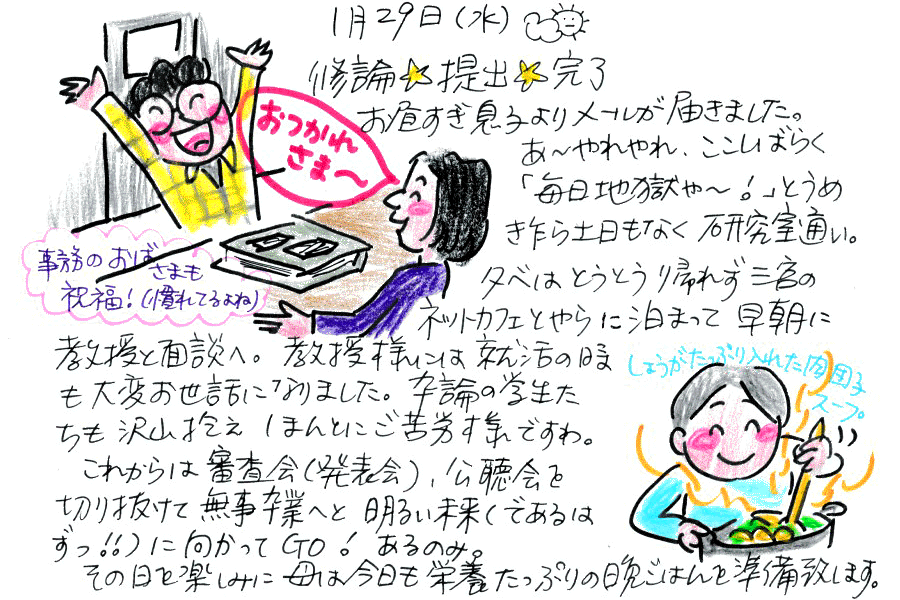 1月29日(水)
修論☆提出☆完了
お昼すぎ息子よりメールが届きました。
おつかれ
さま〜
あ〜やれやれ、ここしばらく
「毎日地獄や〜!」とうめ
きながら土日もなく研究室通い。
事務のおば
さまも
祝福!(慣れてるよね)
夕べはとうとう帰れず三宮の
ネットカフェとやらに泊まって早朝に
教授と面談へ。教授様には就活の時
も大変お世話になりました。卒論の学生た
ちも沢山抱えほんとにご苦労様ですわ。
しょうがたっぷり入れた肉団子
スープ。
これからは審査会(発表会)、公聴会を
切り抜けて無事卒業へと明るい未来(であるは
ずっ!!)に向かってGO!あるのみ。
その日を楽しみに母は今日も栄養たっぷりの晩ごはんを準備致します。